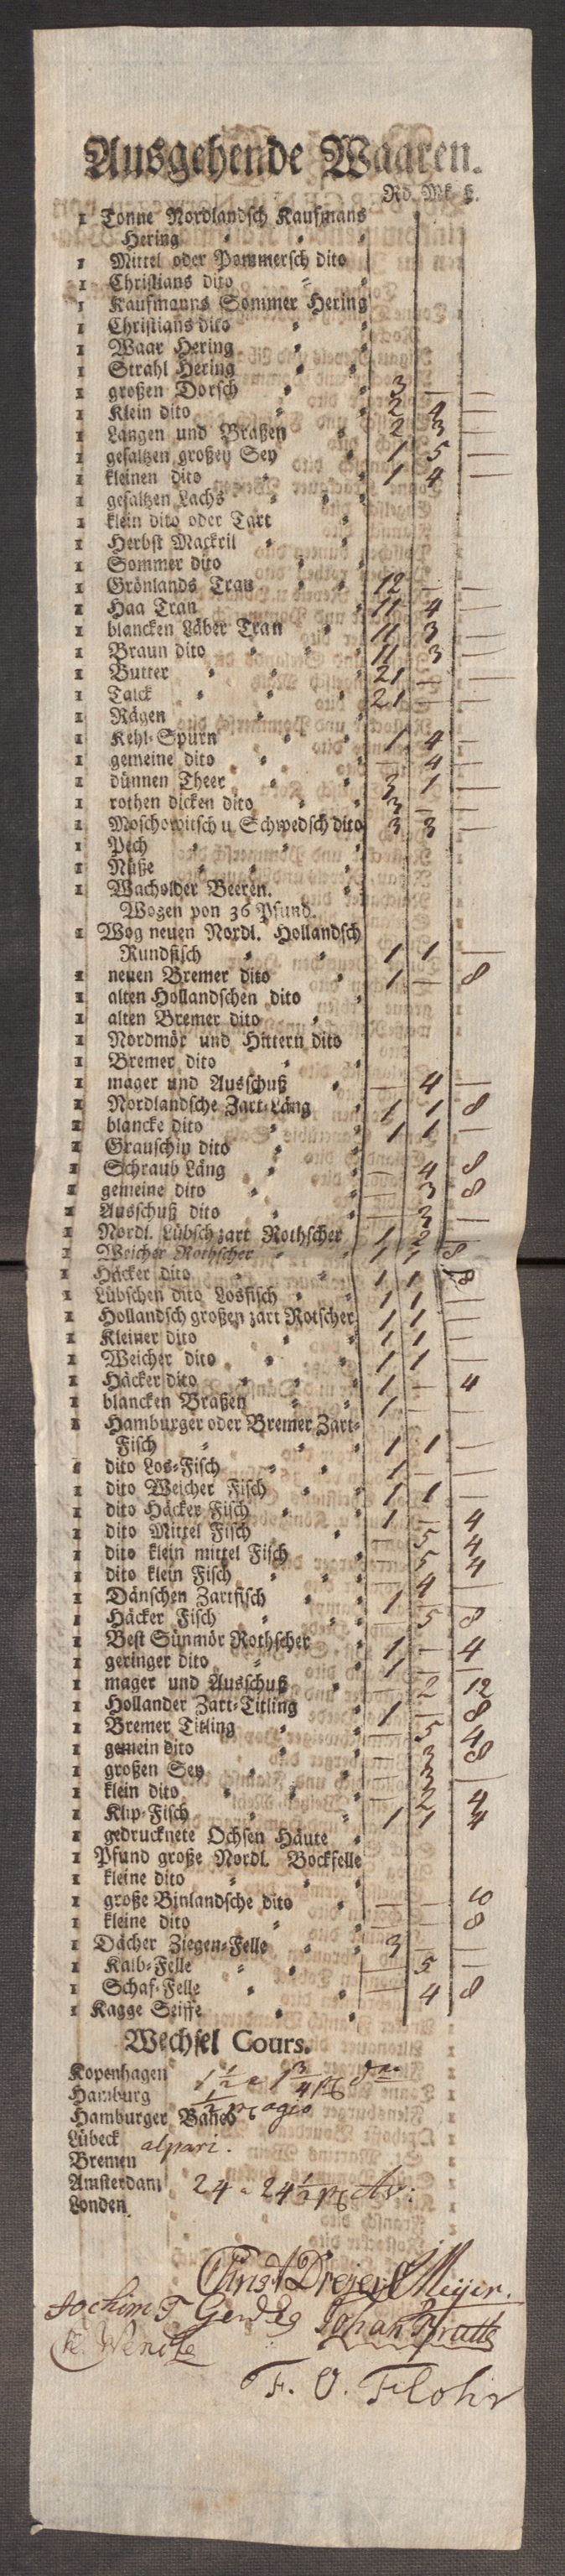 Ausgehende Waaren.
Rd. Mk ß.
1 Tonne Nordlandsch Kaufmans
Hering
1 Mittel oder Pommersch dito
1 Christians dito
1 Kaufmanns Sommer Hering
1 Christians dito
1 Waar Hering
1 Strahl Hering
1 großen Dorsch 3 — —
1 Klein dito 2 4 —
1 Langen und Braßen 2 3 —
1 gesaltzen großen Sey 1 5 —
1 kleinen dito 1 4 —
1 gesaltzen Lachs
1 klein dito oder Tart
1 Herbst Mackril
1 Sommer dito
1 Grönlands Tran 12 — —
1 Haa Tran 11 4 —
1 blancken Läber Tran 11 3 —
1 Braun dito 11 3 —
1 Butter 21 — —
1 Talck 21 — —
1 Rägen
1 Kehl-Spurn 1 4 —
1 gemeine dito — 4 —
1 dünnen Theer 3 1 —
1 rothen dicken dito 3 — —
1 Moschowitsch u Schwedsch dito 3 3 —
1 Pech
1 Nüße
1 Wacholder Beeren.
Wogen von 36 Pfund.
1 Wog neuen Nordl. Hollandsch
Rundfisch 1 1 —
1 neuen Bremer dito 1 — 8
1 alten Hollandschen dito
1 alten Bremer dito
1 Nordmör und Hittern dito
1 Bremer dito
1 mager und Ausschuß — 4 —
1 Nordlandsche Zart-Läng 1 1 8
1 blancke dito 1 1 —
1 Grauschip dito
1 Schraub Läng — 4 8
1 gemeine dito — 3 8
1 Ausschuß dito — 3 —
1 Nordl. Lübsch zart Rothscher 1 2 —
1 Weicher Rothscher 1 1 8
1 Häcker dito 1 1 8
1 Lübschen dito Losfisch 1 1 —
1 Hollandsch großen zart Rotscher 1 1 —
1 Kleiner dito 1 1 —
1 Weicher dito 1 1 —
1 Häcker dito 1 — 4
1 blancken Braßen 1 — —
1 Hamburger oder Bremer Zart-
Fisch 1 1 —
1 dito Los-Fisch 1 — —
1 dito Weicher Fisch 1 1 —
1 dito Häcker Fisch 1 — 4
1 dito Mittel Fisch — 5 4
1 dito klein mittel Fisch — 5 4
1 dito klein Fisch — 4 —
1 Dänschen Zartfisch 1 — —
1 Häcker Fisch — 5 8
1 Best Sünmör Rothscher 1 — 4
1 geringer dito 1 — —
1 mager und Ausschuß — 2 12
1 Hollander Zart-Titling 1 — 8
1 Bremer Titling — 5 4
1 gemein dito — 3 8
1 großen Sey — 3 —
1 klein dito — 2 4
1 Klip-Fisch 1 1 4
1 gedrucknete Ochsen Häute
1 Pfund große Nordl. Bockfelle
1 kleine dito
1 große Binlandsche dito — — 10
1 kleine dito — — 8
1 Dächer Ziegen-Felle 3 — —
1 Kalb-Felle — 5 —
1 Schaf-Felle — 4 8
1 Kagge Seiffe
Wechsel Cours.
Kopenhagen 1 1/2 a 1 3/4
Hamburg
Hamburger Banco 1/2 agio
Lübeck alpari.
Bremen
Amsterdam 24 a 24 1/2
Londen
Christ Dreyer Meijer.
Jochim T Gerdes Johan Bratt
Wencke
F. O. Flohr